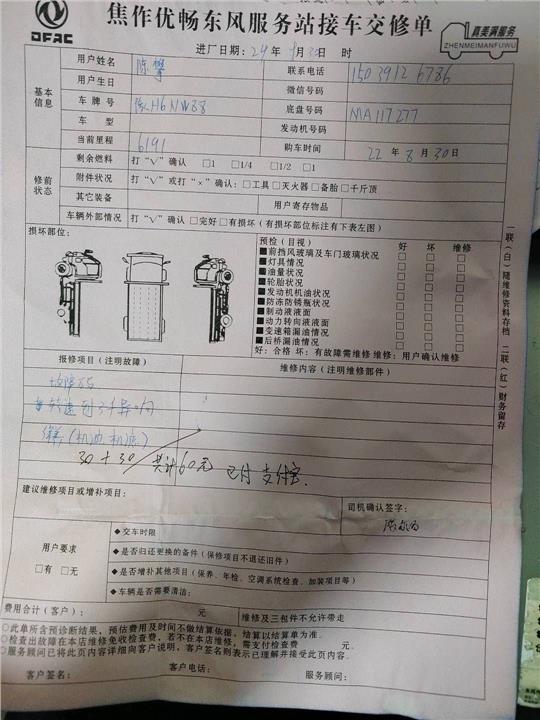 DFAC
焦作优畅东风服务站接车交修单
真美满服务
ZHENMEIMANFUWU
进厂日期：24年1月30日 时
基本信息
用户姓名 陈攀 联系电话 15039126786
用户生日 微信号码
车牌号 豫H6NW88 底盘号码 MA117277
车型 发动机号码
当前里程 6191 购车时间 22年8月30日
修前状态
剩余燃料 打“√”确认 □1 □1/4 □1/2 □1
附件状况 打“√”或打“×”确认：□工具□灭火器□备胎□千斤顶
其它装备 用户寄存物品
车辆外部情况 打“√”确认 □完好□有损坏（有损坏部位标注有下表左图）
损坏部位：
预检（目视） 好 坏 维修
■前挡风玻璃及车门玻璃状况 □ □ □
■灯具情况 □ □ □
■油量状况 □ □ □
■轮胎状况 □ □ □
■发动机机油状况 □ □ □
■防冻防锈液面 □ □ □
■制动液液面 □ □ □
■动力转向液液面 □ □ □
■变速箱漏油情况 □ □ □
■后桥漏油情况 □ □ □
好：合格 坏：有故障需维修 维修：用户确认维修
一联（白）随维修资料存档 二联（红）财务留存
报修项目（注明故障） 维修内容（注明维修部件）
故障灯
转速到3千异响
保养（机油 机滤）
30+30 共计60元 已付 支付宝.
建议维修项目或增补项目： 司机确认签字：
用户要求
□有 □无
◆交车时限
◆是否归还更换的备件（保修项目不退还旧件）
◆是否增补其他项目（保养、年检、空调系统检查、加装项目等）
◆车辆是否需要清洁：
费用合计（客户）： 元 维修及三包件不允许带走
○此单所含预诊断结果，预估费用及时间不做结算依据，结算以结算单为准。
○检查出故障在本店维修免收检查费，若不在本店维修，需支付检查费 元。
○服务顾问已将此页内容详细向客户说明，客户签名则表示已理解并接受此页内容。
客户签名： 客户电话： 服务顾问：